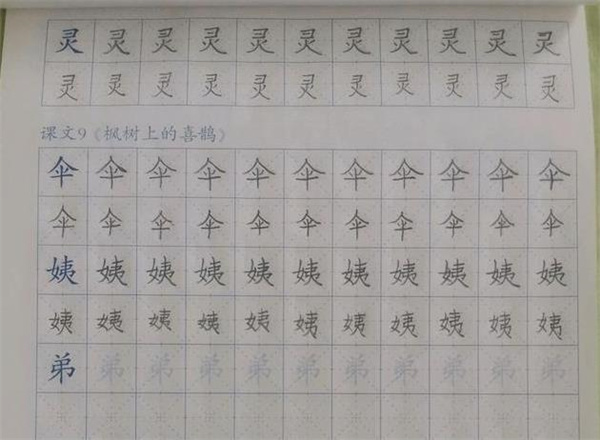 灵灵灵灵灵灵灵灵灵灵灵
灵灵灵灵灵灵灵灵灵灵灵
课文9《枫树上的喜鹊》
伞伞伞伞伞伞伞伞伞伞伞
伞伞伞伞伞伞伞伞伞伞伞
姨姨姨姨姨姨姨姨姨姨姨
姨姨姨姨姨姨姨姨姨姨姨
弟弟弟弟弟弟弟弟弟弟弟